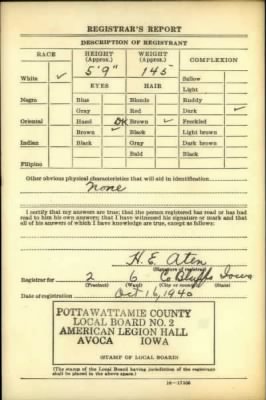 REGISTRAR'S REPORT
DESCRIPTION OF REGISTRANT
RACE HEIGHT (Approx.) WEIGHT (Approx.) COMPLEXION
5' 9" 145
White ✓ Sallow
EYES HAIR Light
Negro Blue Blonde Ruddy
Gray Red Dark ✓
Oriental Hazel DK Brown ✓ Freckled
Brown ✓ Black Light brown
Indian Black Gray Dark brown
Bald Black
Filipino
Other obvious physical characteristics that will aid in identification
None
I certify that my answers are true; that the person registered has read or has had
read to him his own answers; that I have witnessed his signature or mark and that
all of his answers of which I have knowledge are true, except as follows:
H. E. Aten
(Signature of registrar)
Registrar for 2 6 C Bluffs Iowa
(Precinct) (Ward) (City or county) (State)
Date of registration Oct 16, 1940
POTTAWATTAMIE COUNTY
LOCAL BOARD NO. 2
AMERICAN LEGION HALL
AVOCA IOWA
(STAMP OF LOCAL BOARD)
(The stamp of the Local Board having jurisdiction of the registrant
shall be placed in the above space.)